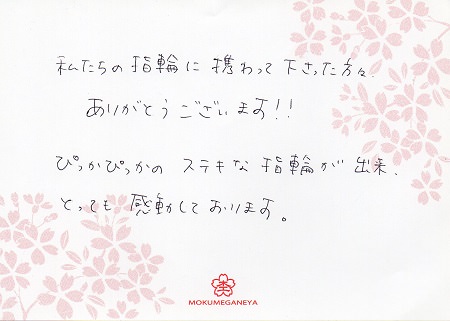 私たちの指輪に携わって下さった方々、
ありがとうございます!!
ぴっかぴっかの ステキな指輪が出来、
とっても感動しております。
MOKUMEGANEYA